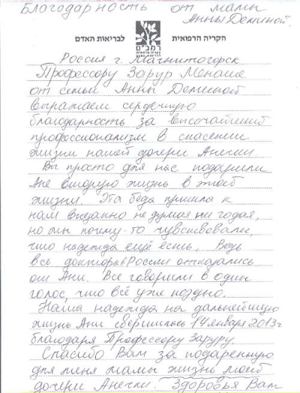 Благодарность от мамы
Анны Деминой.
הקריה הרפואית
רמב"ם
לבריאות האדם
Россия г. Магнитогорск
Профессору Зарур Менаше
от семьи Анны Деминой
выражаем сердечную
благодарность за высочайший
профессионализм в спасении
жизни нашей дочери Анечки.
Вы просто для нас подарили
Ане вторую жизнь в этой
жизни. Эта беда пришла к
нам внезапно не думая ни гадая,
но мы почему-то чувствовали,
что надежда ещё есть. Ведь
все доктора России отказались
от Ани. Все говорили в один
голос, что всё уже поздно.
Наша надежда на дальнейшую
жизнь Ани свершилась 14 января 2013г
благодаря Профессору Заруру.
Спасибо Вам за подаренную
для меня мамы жизнь моей
дочери Анечки. Здоровья Вам